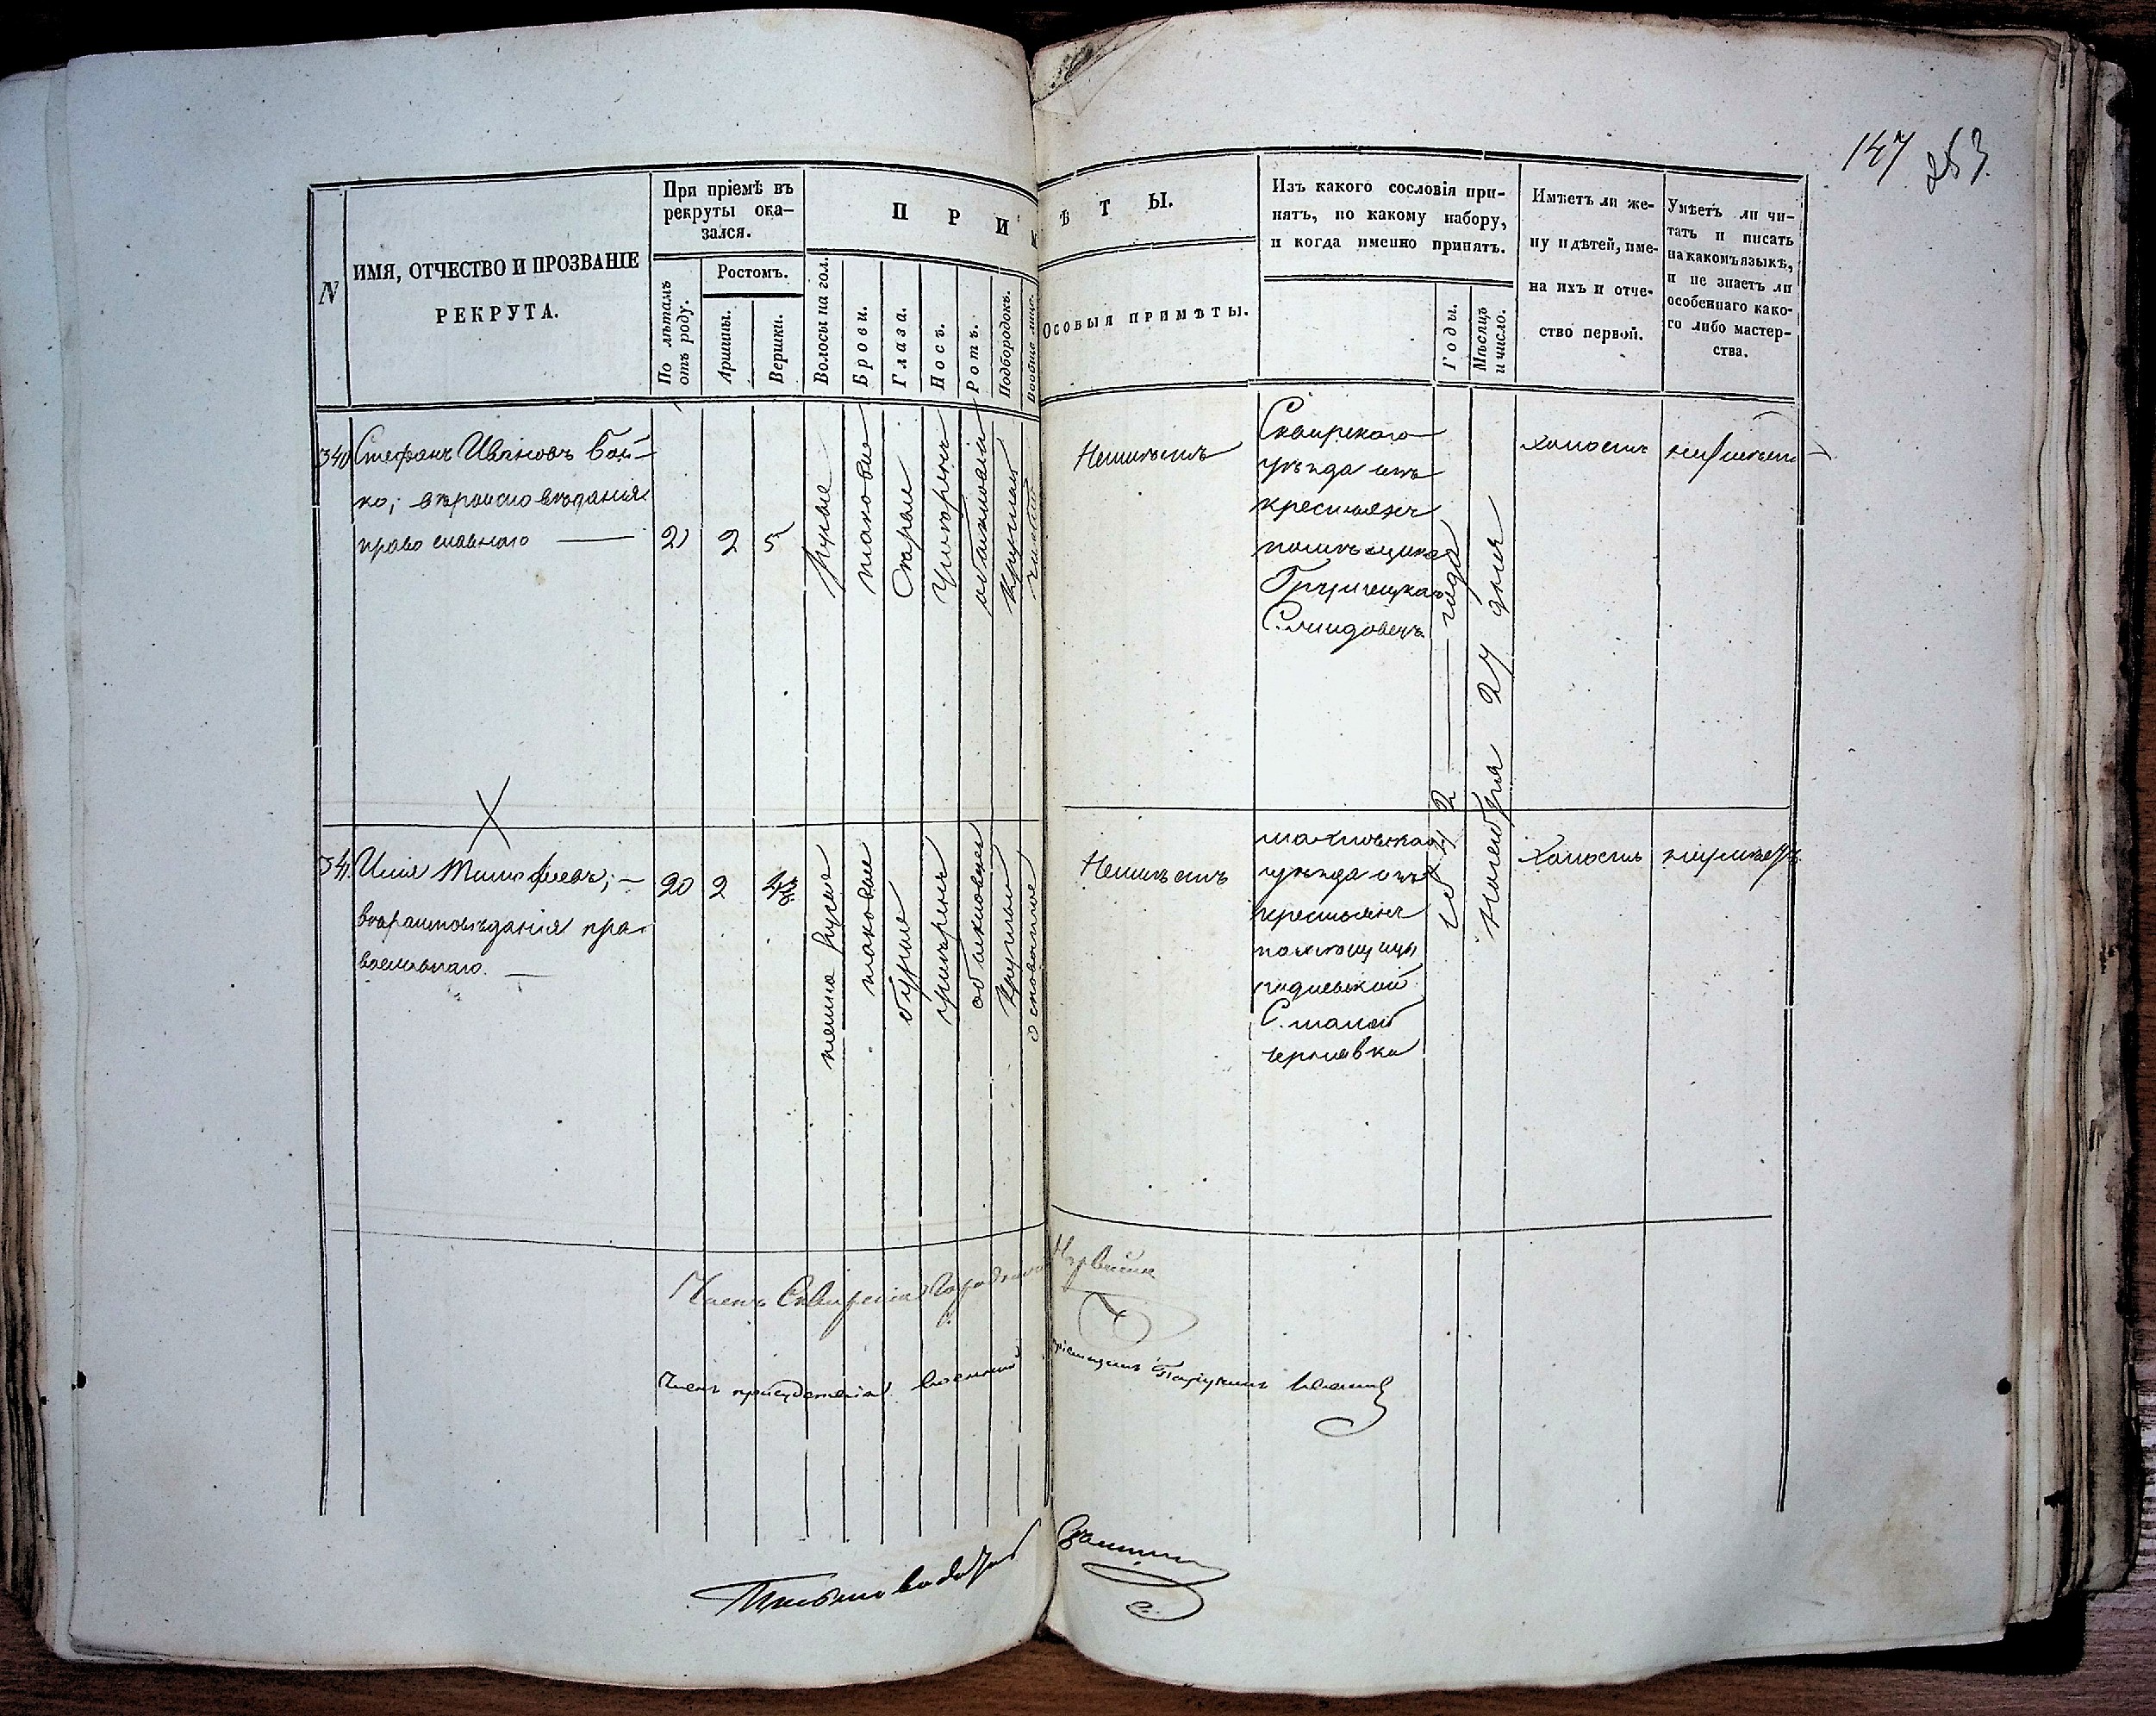 147 253.
N
ИМЯ, ОТЧЕСТВО И ПРОЗВАНІЕ
РЕКРУТА.
При пріемѣ въ
рекруты ока-
зался.
По лѣтамъ
отъ роду.
Ростомъ.
Аршины.
Вершки.
П Р И М
Ѣ Т Ы.
Волосы на гол.
Брови.
Глаза.
Носъ.
Ротъ.
Подбородокъ.
Вообще лицо.
Особыя примѣты.
Изъ какого сословія при-
нятъ, по какому набору,
и когда именно принятъ.
Годы.
Мѣсяцъ
и число.
Имѣетъ ли же-
ну и дѣтей, име-
на ихъ и отче-
ство первой.
Умѣетъ ли чи-
тать и писать
на какомъ языкѣ,
и не знаетъ ли
особеннаго како-
го либо мастер-
ства.
340
Стефанъ Ивановъ Бой-
ко; вѣроисповѣданія
православнаго
21
2
5
Русые
таковые
Серые
Умѣренъ
обыкновенный
Круглый
чистое
Неимѣетъ
Сквирскаго
уѣзда изъ
крестьянъ
помѣщика
холостъ
неумѣетъ
341
Илія Тимофѣевъ;
вѣроисповѣданія пра-
вославнаго.
20
2
темно русые
таковые
бурые
умѣренъ
обыкновенъ
Круглый
Неимѣетъ
уѣзда изъ
крестьянъ
помѣщицы
С. малой
чернявки
Холостъ
неумѣетъ
года
Ноября 27 дня
Членъ Сквирской Городской
Членъ присудствія военный